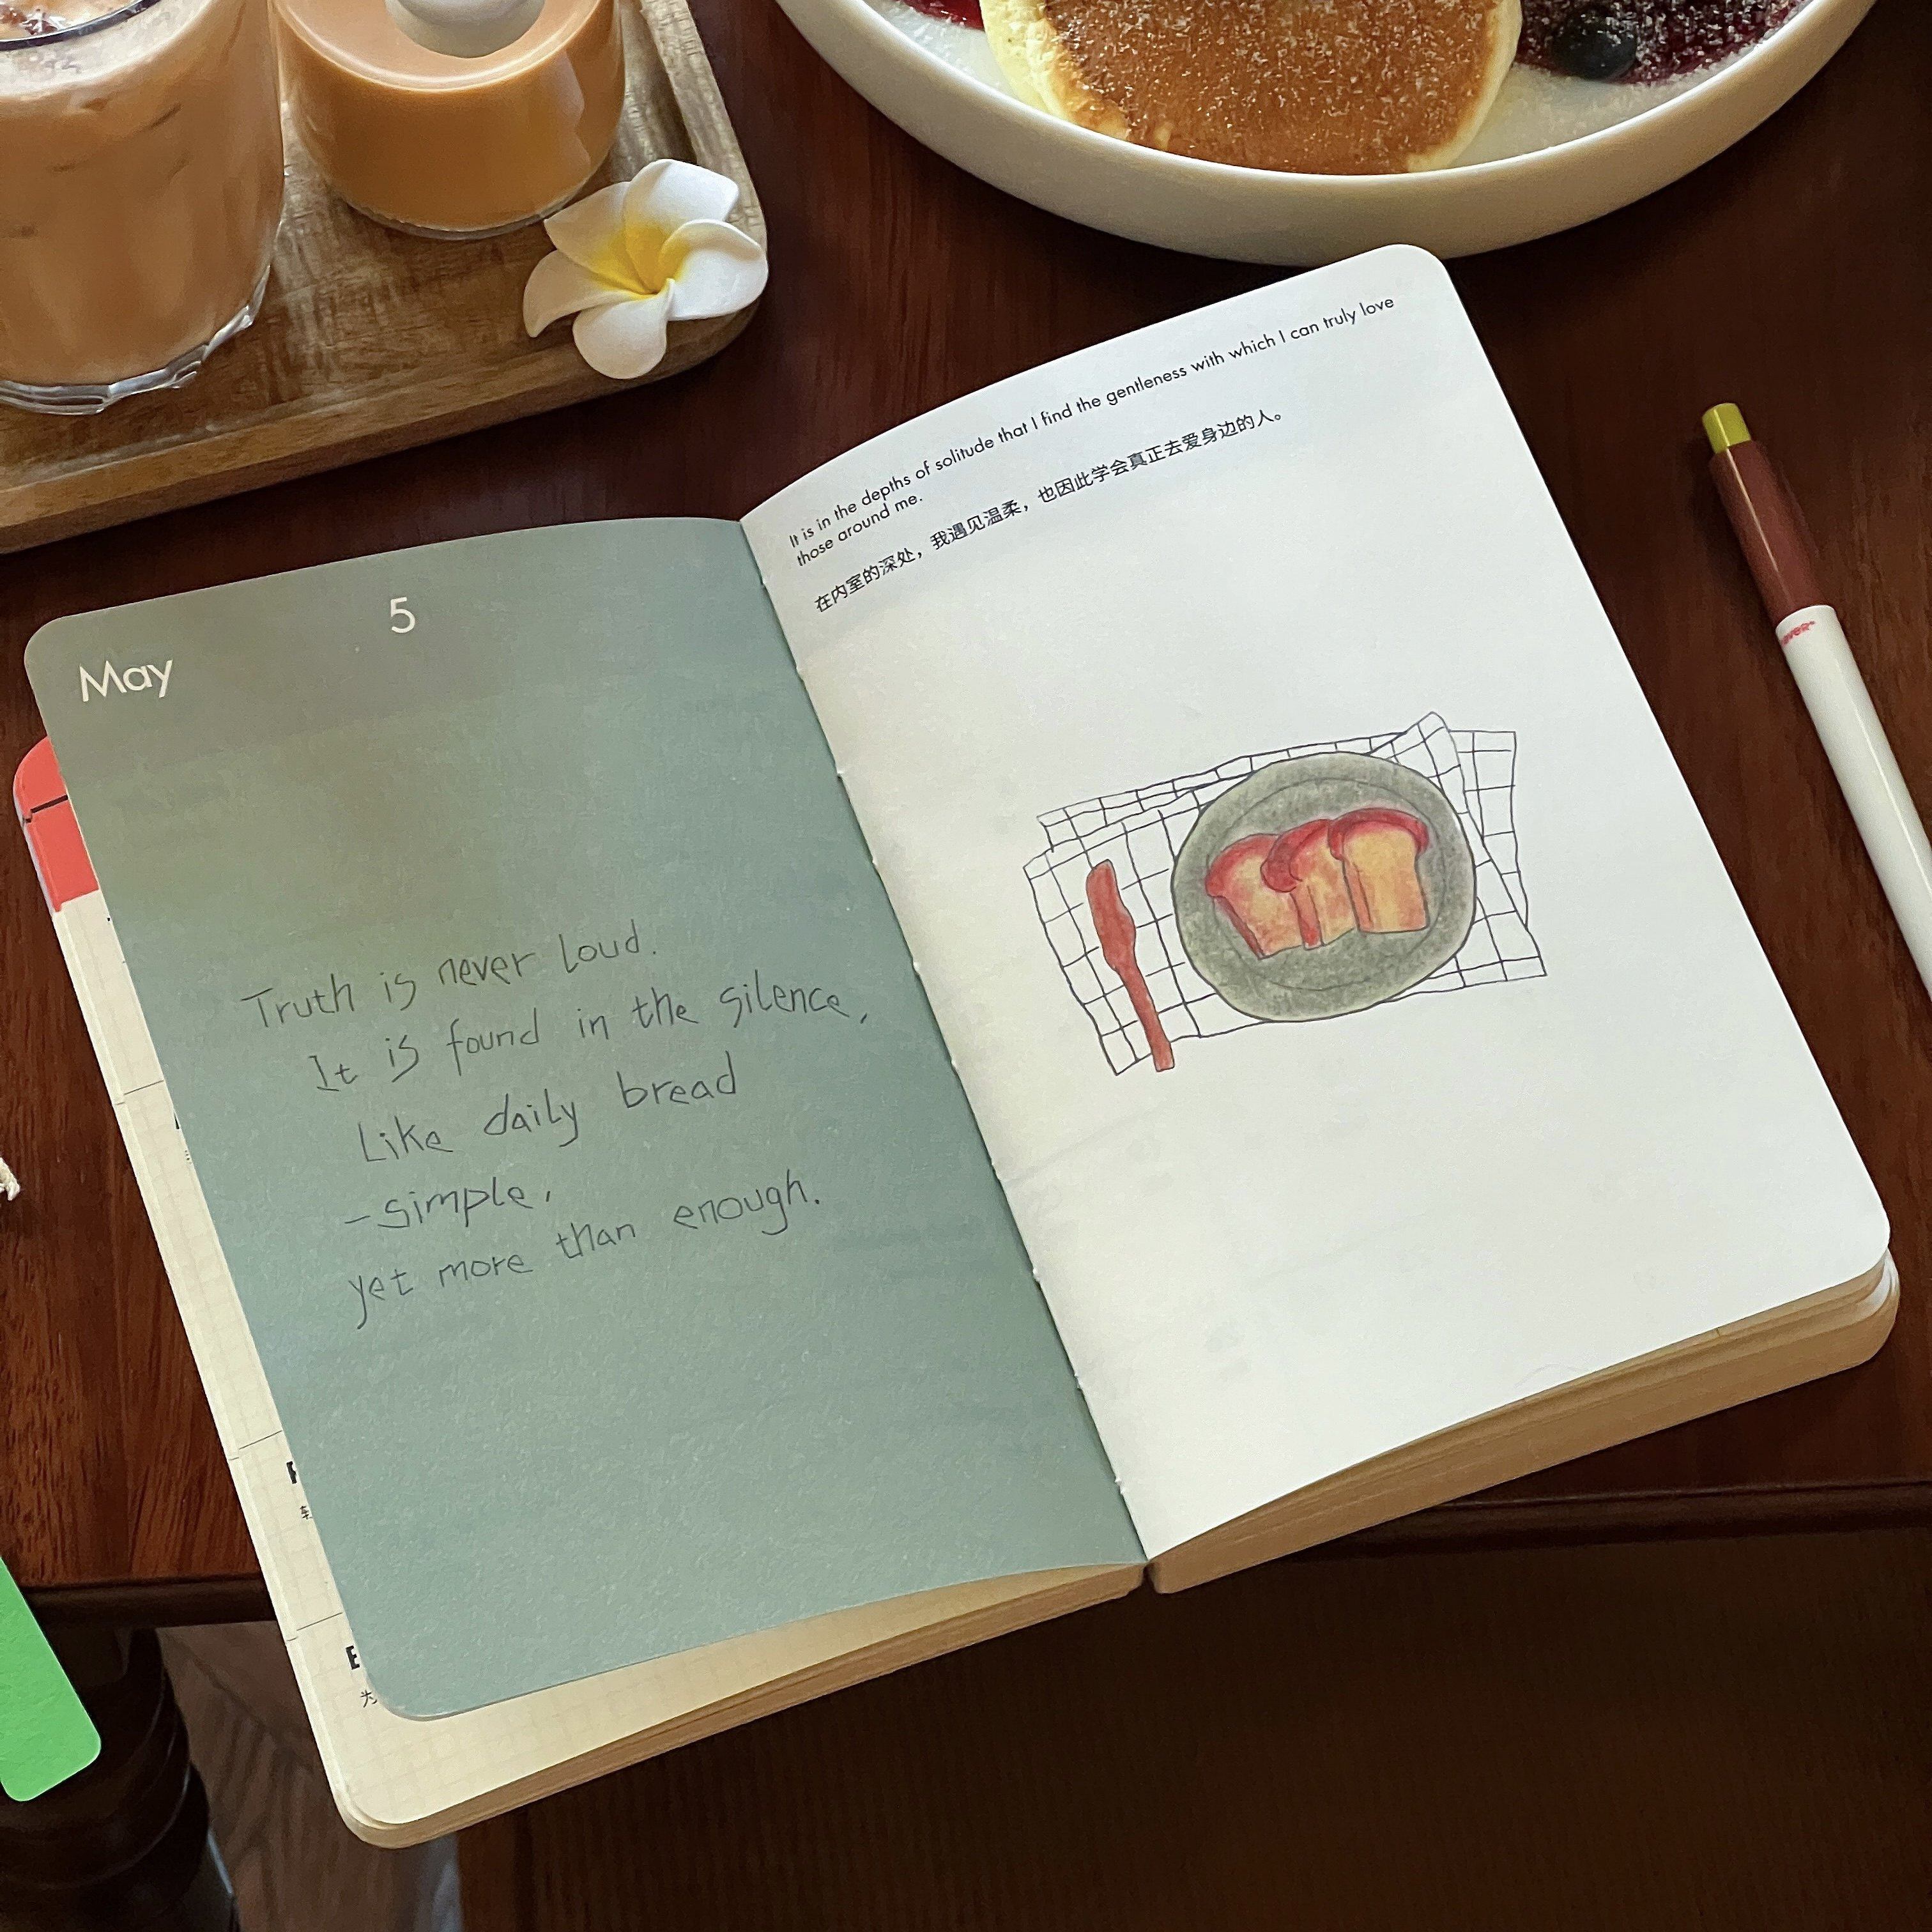 May
5
Truth is never loud.
It is found in the silence,
Like daily bread
-simple,
yet more than enough.
It is in the depths of solitude that I find the gentleness with which I can truly love
those around me.
在内室的深处，我遇见温柔，也因此学会真正去爱身边的人。